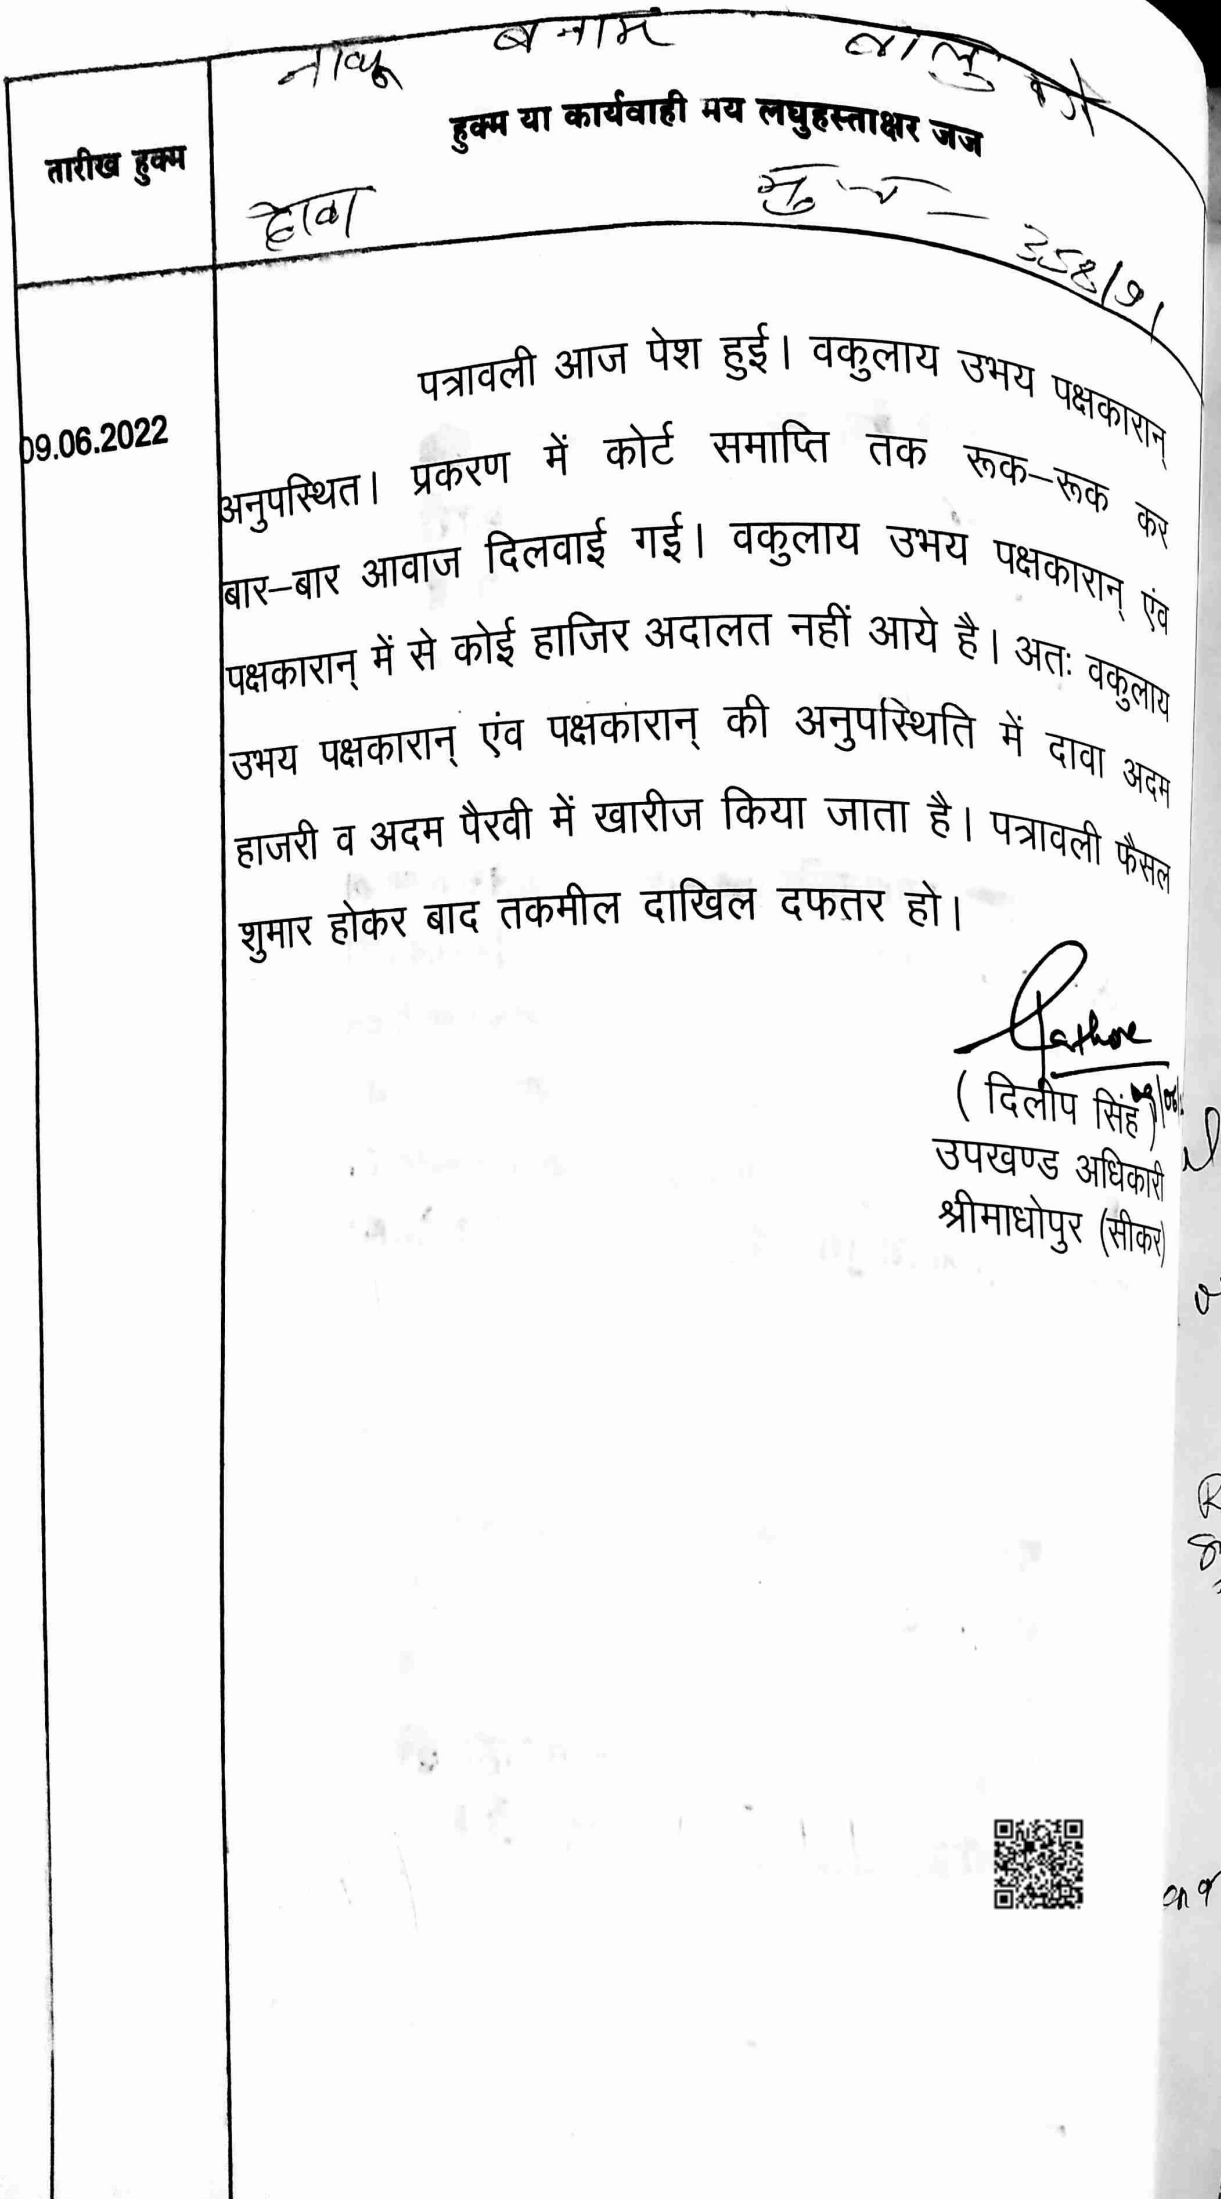 बनाम
तारीख हुक्म
हुक्म या कार्यवाही मय लघुहस्ताक्षर जज
दावा
358/91
पत्रावली आज पेश हुई। वकुलाय उभय पक्षकारान्
09.06.2022
अनुपस्थित। प्रकरण में कोर्ट समाप्ति तक रूक–रूक कर
बार–बार आवाज दिलवाई गई। वकुलाय उभय पक्षकारान् एंव
पक्षकारान् में से कोई हाजिर अदालत नहीं आये है। अतः वकुलाय
उभय पक्षकारान् एंव पक्षकारान् की अनुपस्थिति में दावा अदम
हाजरी व अदम पैरवी में खारीज किया जाता है। पत्रावली फैसल
शुमार होकर बाद तकमील दाखिल दफतर हो।
( दिलीप सिंह )
उपखण्ड अधिकारी
श्रीमाधोपुर (सीकर)